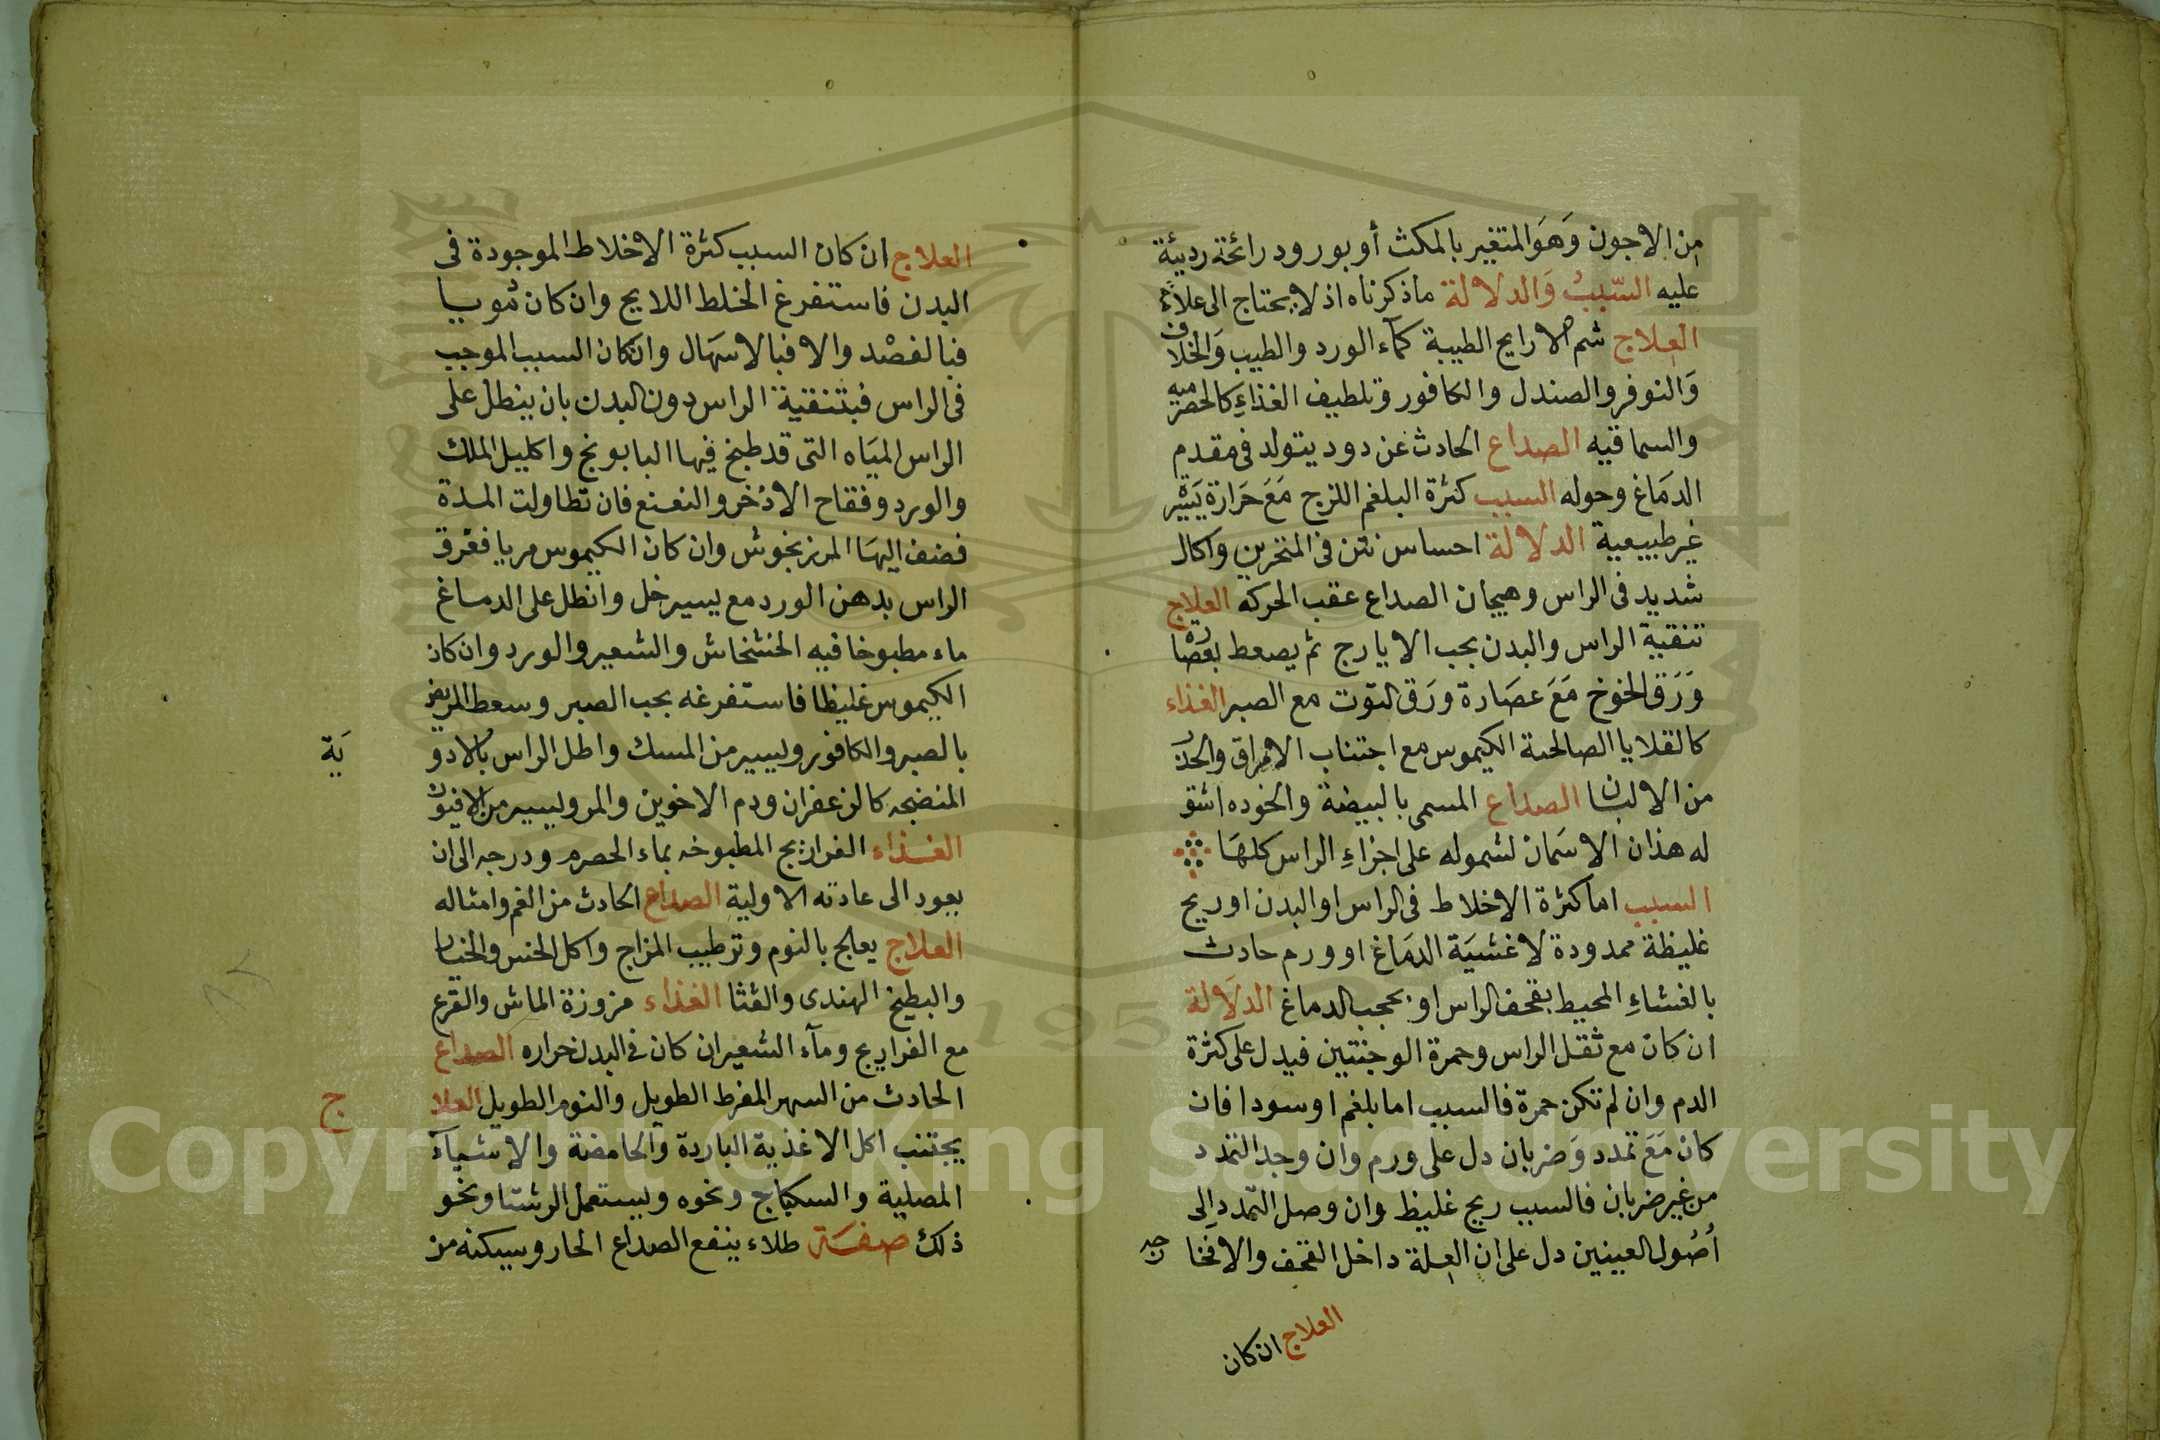 من الاجون وَهوَ المتغير بالمكث أو بورود رائحة رديئة
عليه السّببُ وَالدلالة ماذكرناه اذ لا يحتاج الى علاج
العلاج شم الارايح الطيبة كمآء الورد والطيب وَالخلاف
وَالنوفر والصندل والكافور وتلطيف الغذاءِ كالحصرميه
والسماقيه الصداع الحادث عن دود يتولد فى مقدم
الدمَاغ وحوله السبب كثرة البلغم اللزج مَعَ حَرَارة يَسيْر
غير طبيعية الدلالة احساس نتن فى المنخرين واكال
شديد فى الراس وهيجان الصداع عقب الحركه العلاج
تنقية الراس والبدن بحب الايارج ثم يصعط بعصاره
وَرَق الخوخ مَعَ عصَارة ورَق التوت مع الصبر الغذاء
كالقلايا الصالحة الكيموس مع اجتناب الامراق والحذر
من الالبان الصداع المسمى بالبيضة والخوده اشتق
له هذان الاسمَان لشموله على اجزاءِ الراس كلهَا
السبب اما كثرة الاخلاط فى الراس او البدن او ريح
غليظة ممدودة لاغشيَة الدمَاغ او ورم حادث
بالغشاءِ المحيط بقحف الراس او بحجب الدماغ الدلَالة
ان كان مع ثقل الراس وحمرة الوجنتين فيدل على كثرة
الدم وان لم تكن حمرة فالسبب اما بلغم او سودا فان
كان مَعَ تمدد وَضربان دل على ورم وان وجد التمدد
من غير ضربان فالسبب ريح غليظ وان وصل التمدد الى
أصُول العينين دل على ان العلة داخل القحف والا فخارجه
العلاج ان كان
العلاج ان كان السبب كثرة الاخلاط الموجودة فى
البدن فاستفرغ الخلط اللايح وان كان دمويا
فبالفصْد والا فبالاسهَال وان كان السبب الموجب
فى الراس فبتنقية الراس دون البدن بان ينطل على
الراس الميَاه التى قد طبخ فيها البابونج واكليل الملك
والورد وفقاح الاذخر والنعنع فان تطاولت المدة
فضف اليهَا المرزنجوش وان كان الكيموس مريا فغرق
الراس بدهن الورد مع يسير خل وانطل على الدماغ
ماء مطبوخا فيه الخشخاش والشعير والورد وان كان
الكيموس غليظا فاستفرغه بحب الصبر وسعط المريض
بالصبر والكافور ويسير من المسك واطل الراس بالادوية
المنضجه كالزعفران ودم الاخوين والمر ويسير من الافيون
الغذاء الفراريج المطبوخه بماء الحصرم ودرجه الى ان
يعود الى عادته الاولية الصداع الحادث من الغم وامثاله
العلاج يعالج بالنوم وترطيب المزاج واكل الخس والخيار
والبطيخ الهندى والقثا الغذاء مزوزة الماش والقرع
مع الفراريج ومآء الشعير ان كان فى البدن حراره الصداع
الحادث من السهر المفرط الطويل والنوم الطويل العلاج
يجتنب اكل الاغذية الباردة وَالحامضة والاشيآء
المصلية والسكباج ونحوه ويستعمل الرشتا ونحو
ذلك صفة طلاء ينفع الصداع الحار ويسكنه من
Copyright © King Saud University
195